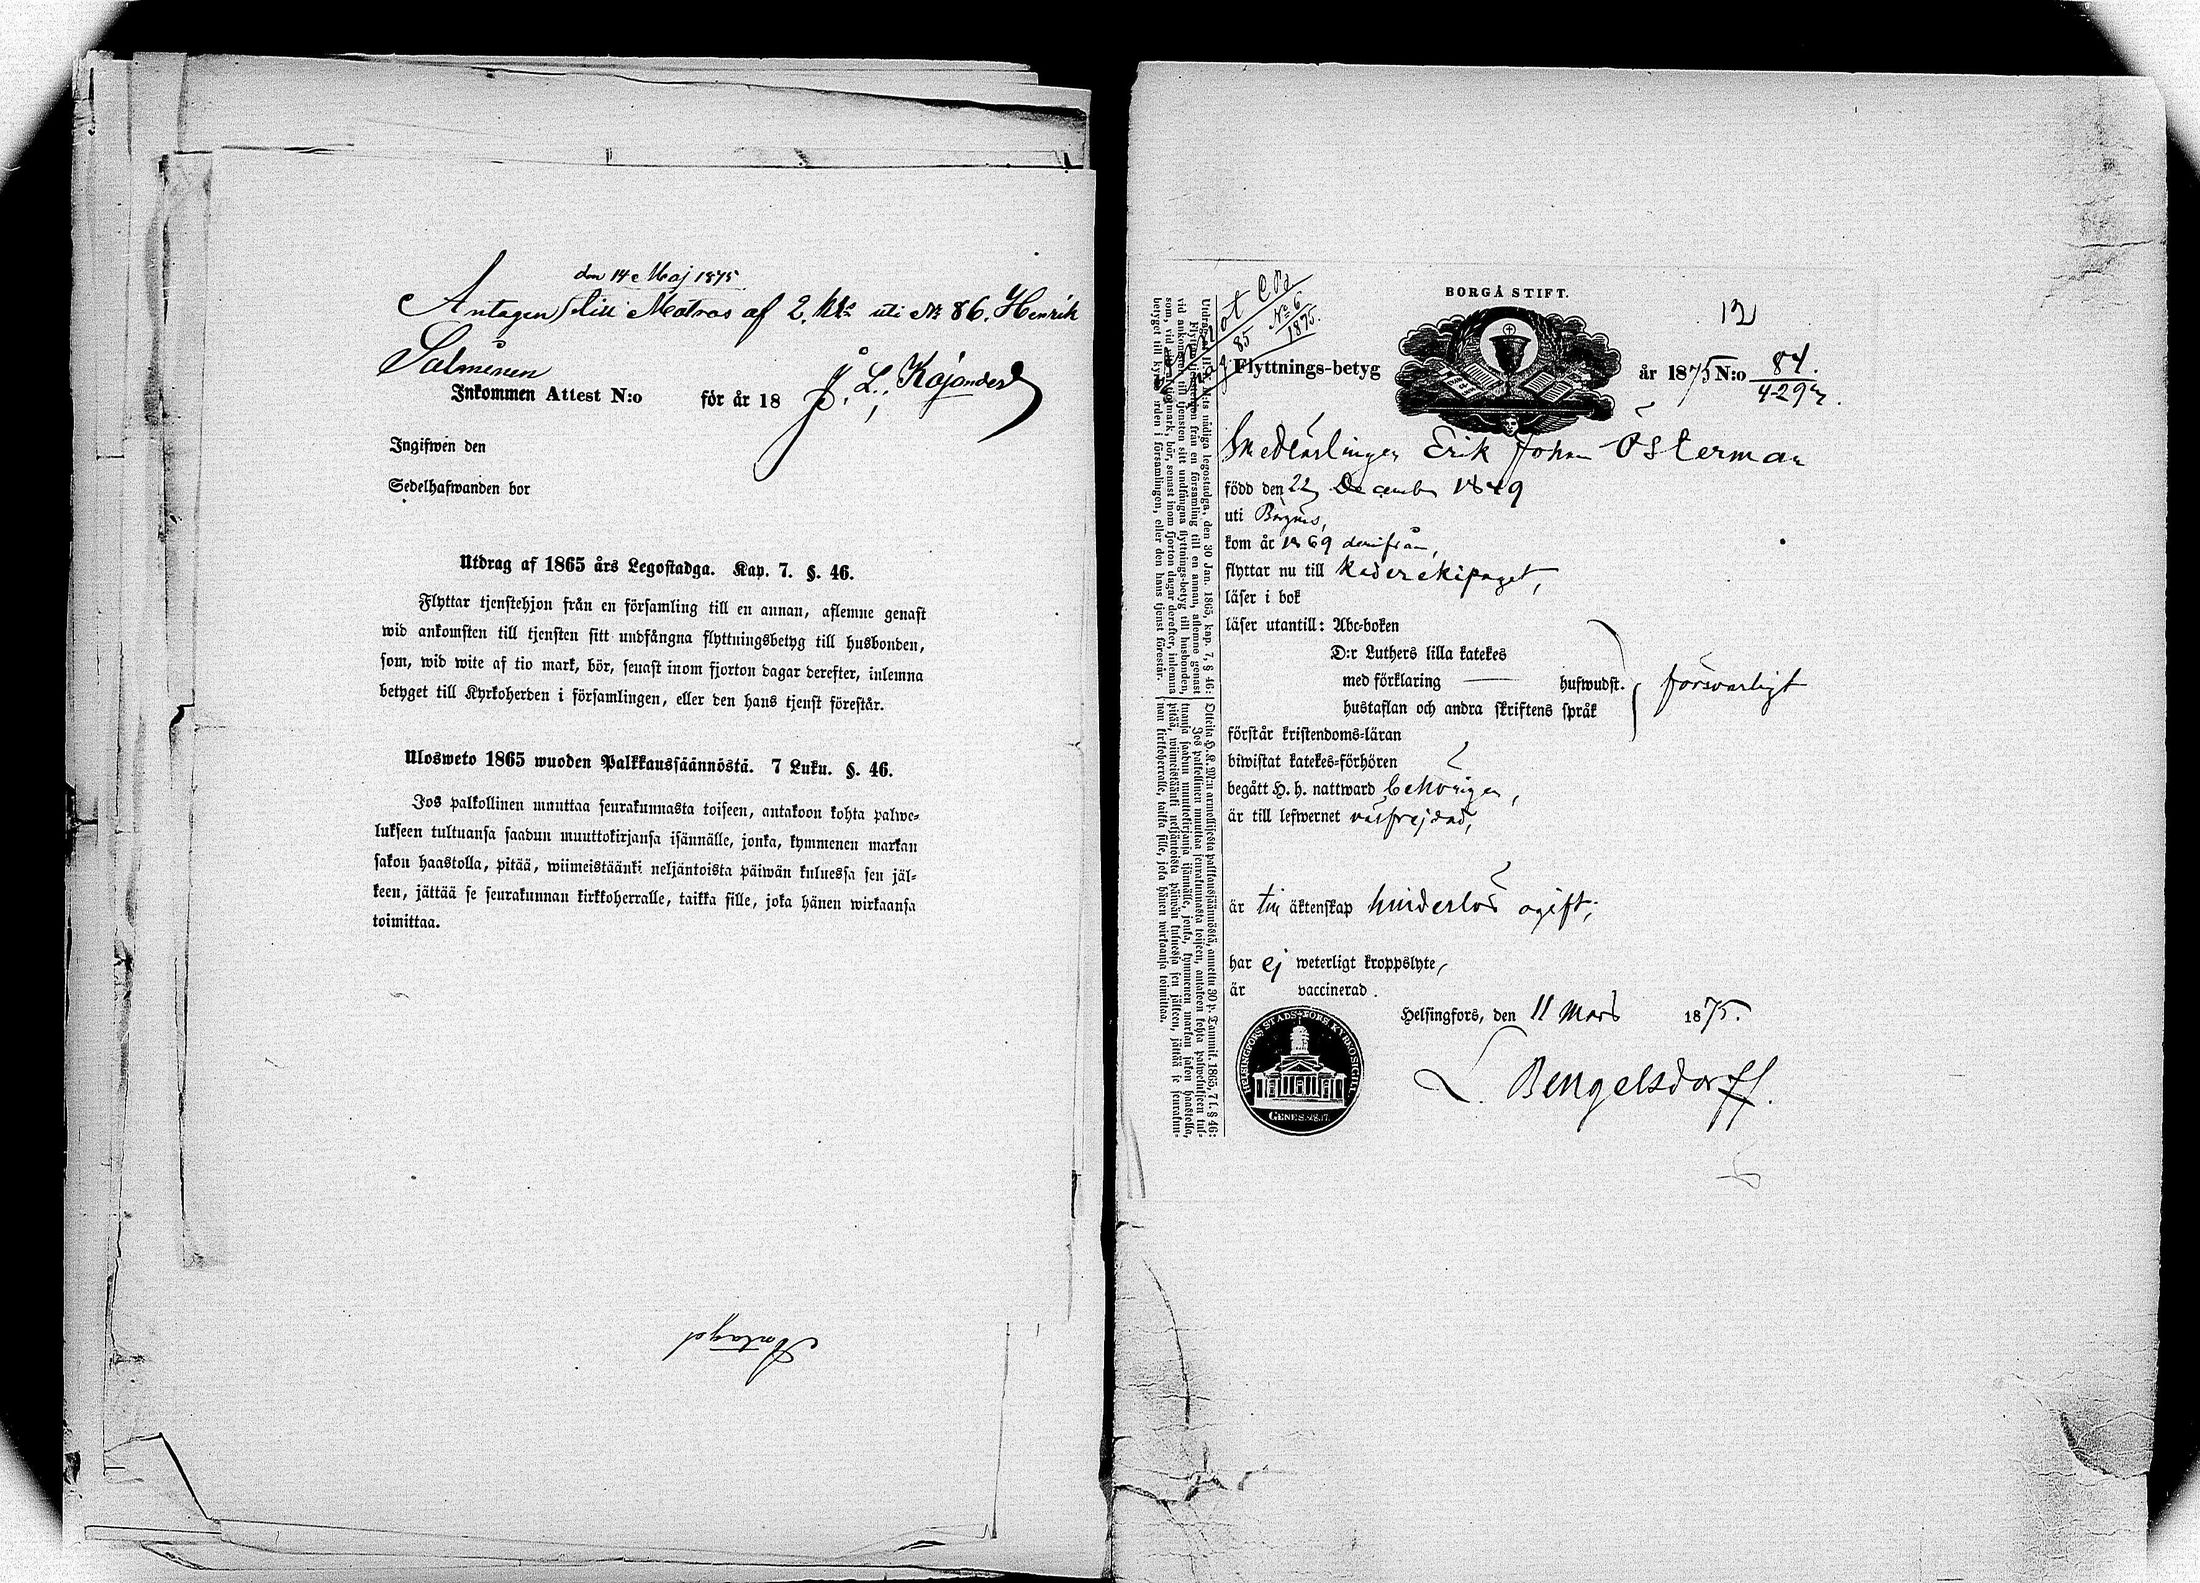 den 14 Maj 1875
Antagen till Matros af 2. kls uti № 86. Henrik
Salmenen
J. L. Kajander
Inkommen Attest N:o för år 18
Ingifwen den
Sedelhafwanden bor
Utdrag af 1865 års Legostadga. Kap. 7. §. 46.
Flyttar tjenstehjon från en församling till en annan, aflemne genast
wid ankomsten till tjensten sitt undfångna flyttningsbetyg till husbonden,
som, wid wite af tio mark, bör, senast inom fjorton dagar derefter, inlemna
betyget till Kyrkoherden i församlingen, eller den hans tjenst förestår.
Ulosweto 1865 wuoden Palkkaussäännöstä. 7 Luku. §. 46.
Jos palkollinen muuttaa seurakunnasta toiseen, antakoon kohta palwe-
lukseen tultuansa saadun muuttokirjansa isännälle, jonka, kymmenen markan
sakon haastolla, pitää, wiimeistäänki neljäntoista päiwän kuluessa sen jäl-
keen, jättää se seurakunnan kirkkoherralle, taikka sille, joka hänen wirkaansa
toimittaa.
Antagen
BORGÅ STIFT.
12
85 № 6
1875.
Flyttnings-betyg år 1875 N:o 84.
429
Erik Johan Österman
född den 22 December 1849
uti Borgnäs,
kom år 1869 derifrån,
flyttar nu till Kaderekipaget,
läser i bok
läser utantill: Abc-boken
D:r Luthers lilla katekes
med förklaring hufwudst. försvarligt
hustaflan och andra skriftens språk
förstår kristendoms-läran
biwistat katekes-förhören
begått H. h. nattward behörigen,
är till lefwernet välfrejdad,
är till äktenskap hinderlös ogift;
har ej weterligt kroppslyte,
är vaccinerad.
Helsingfors, den 11 Mars 1875.
L. Bengelsdorff.
HELSINGFORS STADS-FÖRS. KYRKOSIGILL
GENES. 28. 17.
Utdrag af H. K. M:ts nådiga legostadga, den 30 Jan. 1865, kap. 7, § 46:
Flyttar tjenstehjon från en församling till en annan, aflemne genast
vid ankomsten till tjensten sitt undfångna flyttnings-betyg till husbonden,
som, vid vite af tio mark, bör, senast inom fjorton dagar derefter, inlemna
betyget till kyrkoherden i församlingen, eller den hans tjenst förestår.
Otteita H. K. M:n armollisesta palkkaussäännöstä, annettu 30 p. Tammik. 1865, 7 l. § 46:
Jos palkollinen muuttaa seurakunnasta toiseen, antakoon kohta palwelukseen tul-
tuansa saadun muuttokirjansa isännälle, jonka, kymmenen markan sakon haastolla,
pitää, wiimeistäänki neljäntoista päiwän kuluessa sen jälkeen, jättää se seurakun-
nan kirkkoherralle, taikka sille, joka hänen wirkaansa toimittaa.